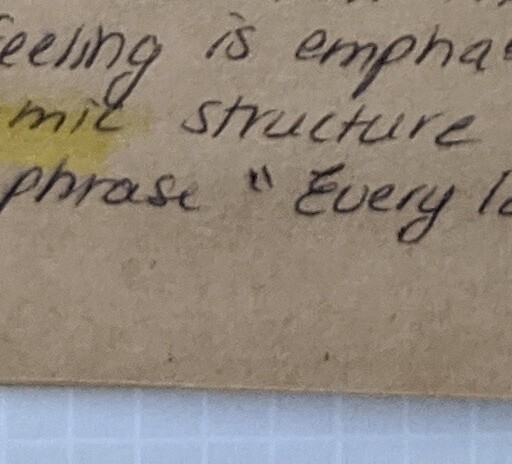 feeling is empha
mic structure
phrase " Every lo